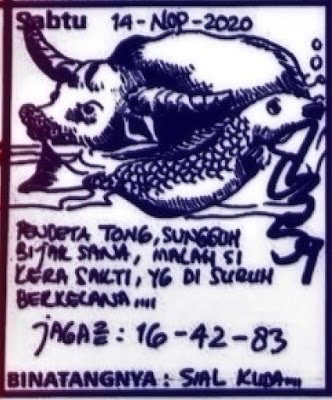 Sabtu 14-NOP-2020
PENDETA TONG, SUNGGUH
BIJAK SANA, MALAH SI
KERA SAKTI, YG DI SURUH
BERKELANA....
JAGA2 : 16-42-83
BINATANGNYA : SIAL KUDA....